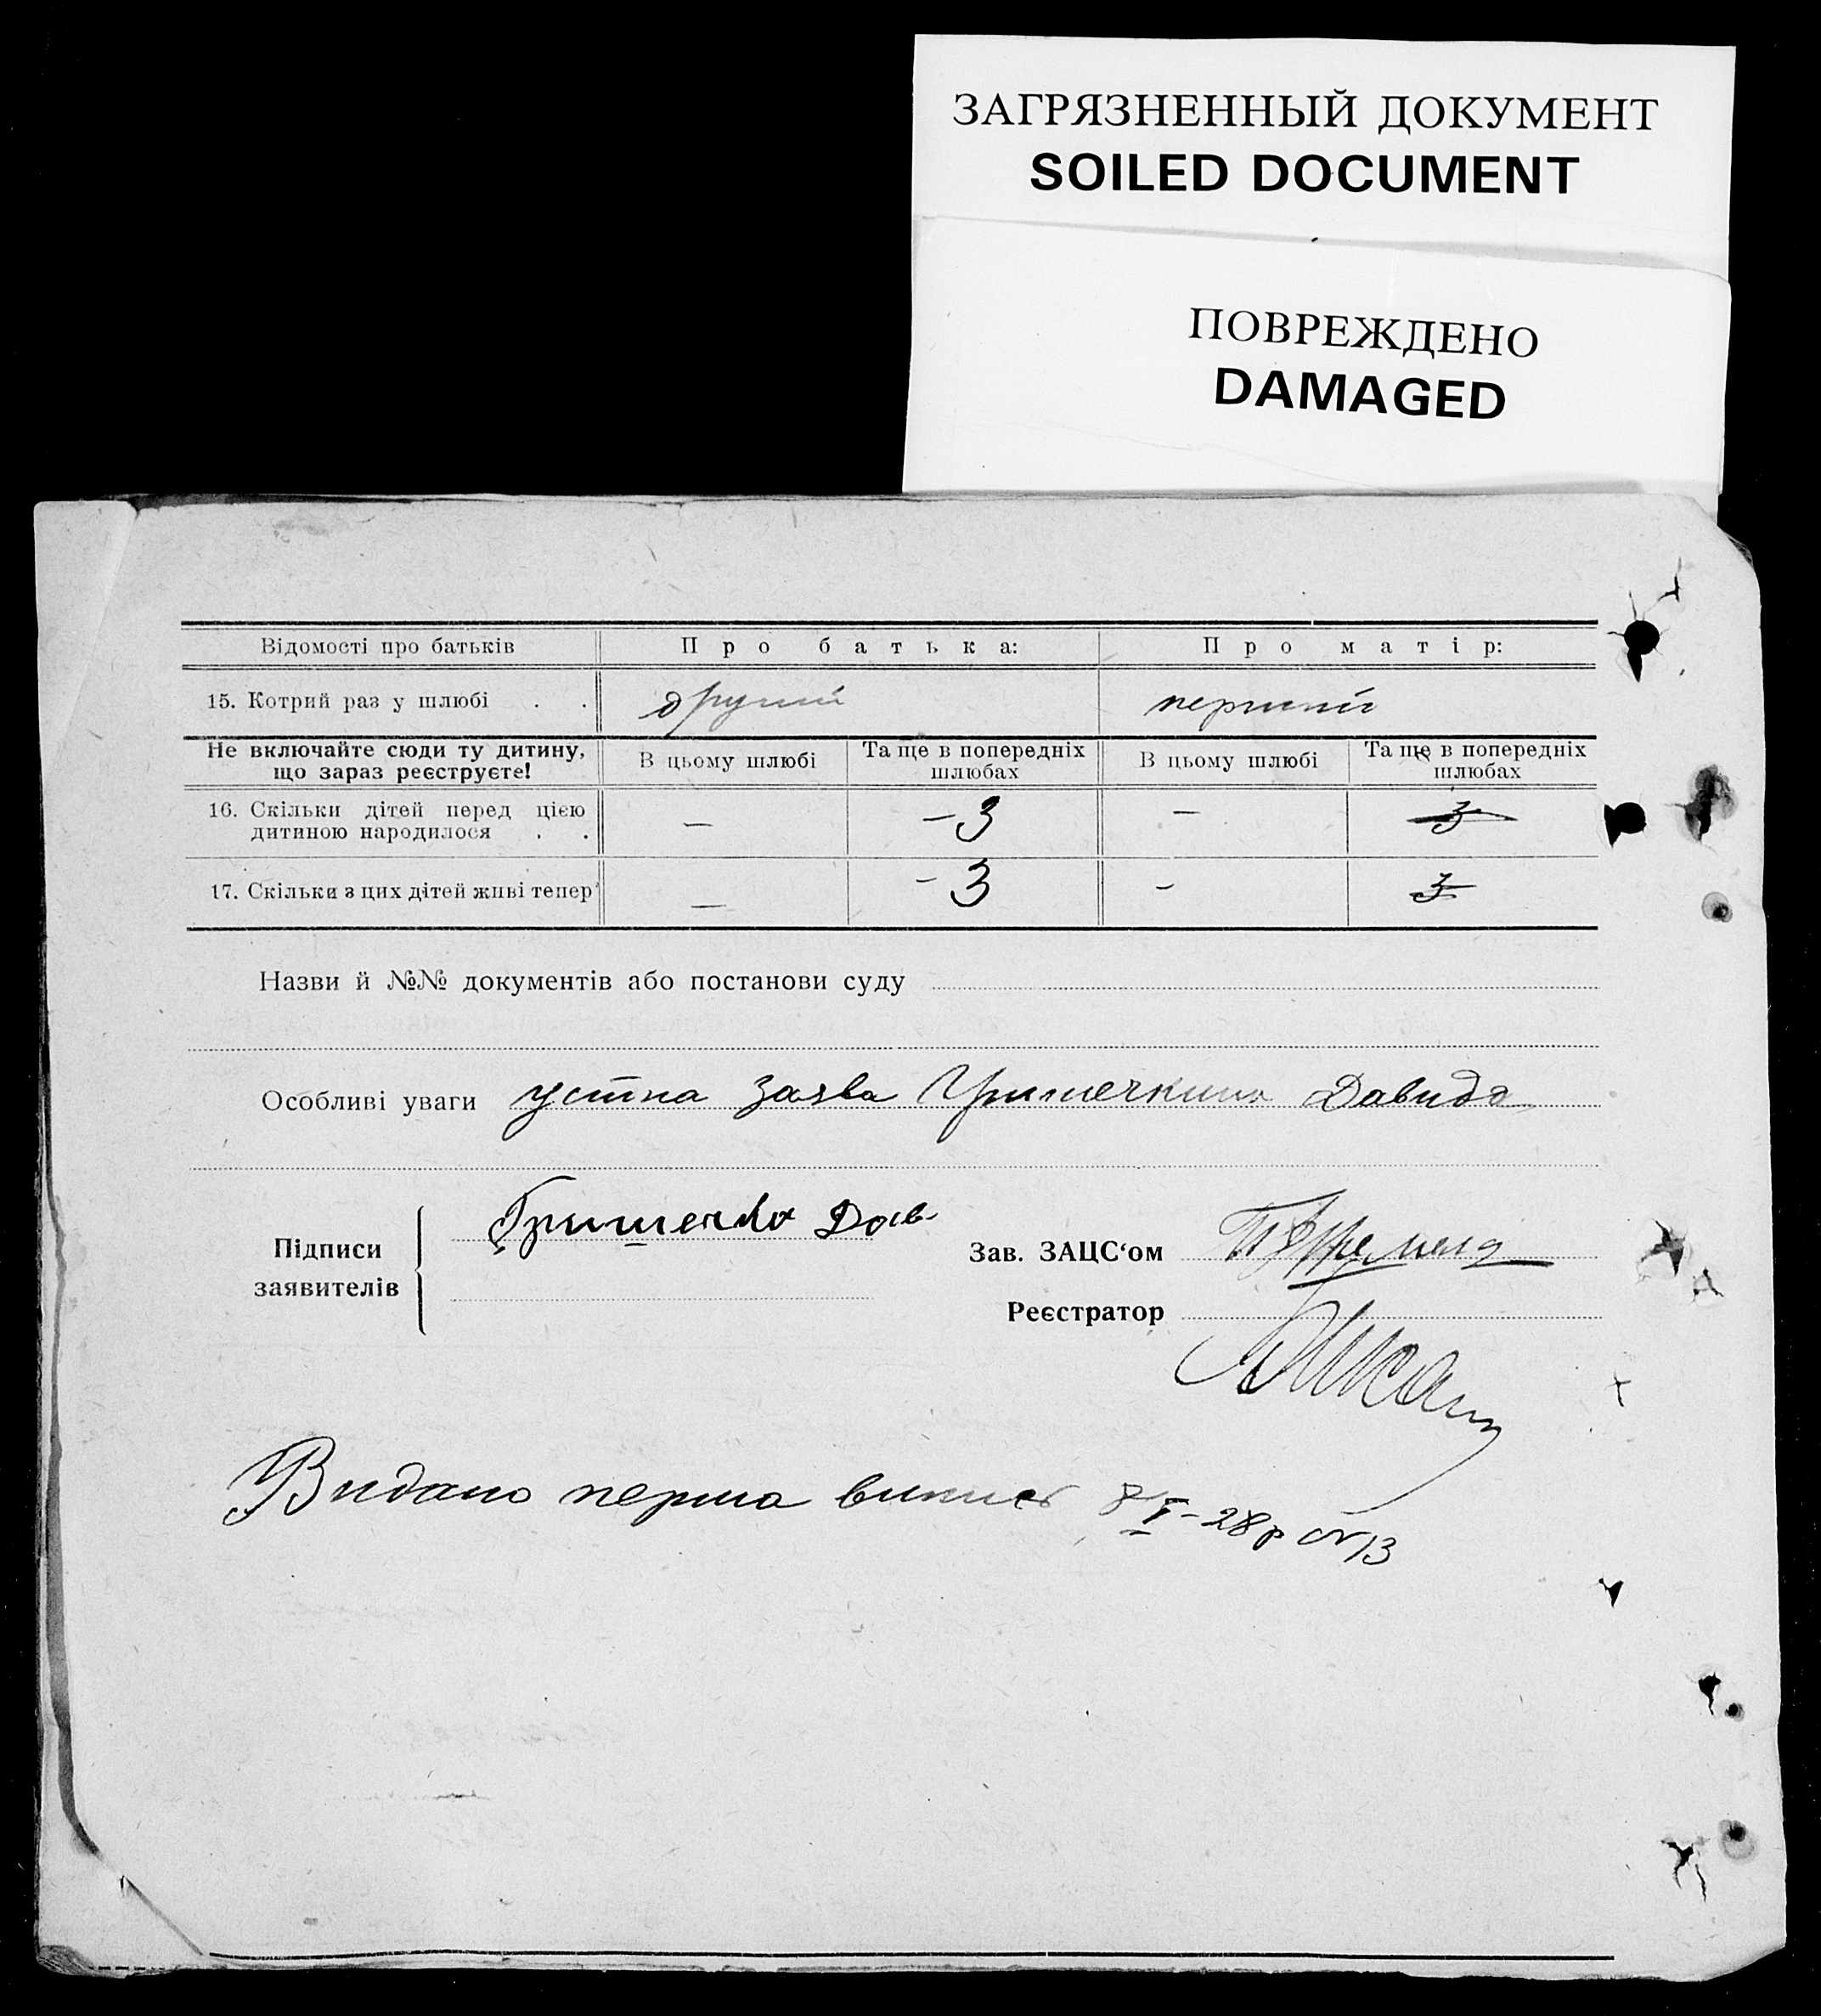 ЗАГРЯЗНЕННЫЙ ДОКУМЕНТ
SOILED DOCUMENT
ПОВРЕЖДЕНО
DAMAGED
Відомості про батьків Про батька: Про матір:
15. Котрий раз у шлюбі . . другий перший
Не включайте сюди ту дитину, що зараз реєструєте! В цьому шлюбі Та ще в попередніх шлюбах В цьому шлюбі Та ще в попередніх шлюбах
16. Скільки дітей перед цією дитиною народилося . . — - 3 — 3
17. Скільки з цих дітей живі тепер — - 3 - 3
Назви й №№ документів або постанови суду
Особливі уваги устна заява Давида
Підписи заявителів Дав.
Зав. ЗАЦС‘ом
Реєстратор
Видано перша випись 8 I - 28 р № 13